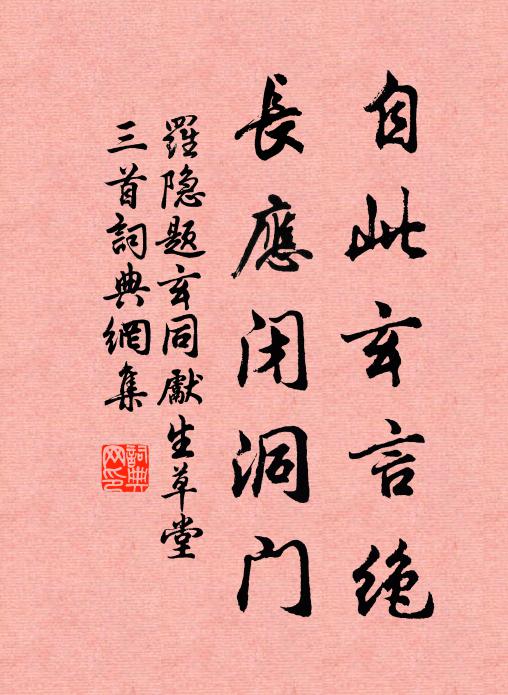 自此玄言绝
長應闭洞门
羅隐题玄同獻生草堂
三首詞典網集
詞典
网印